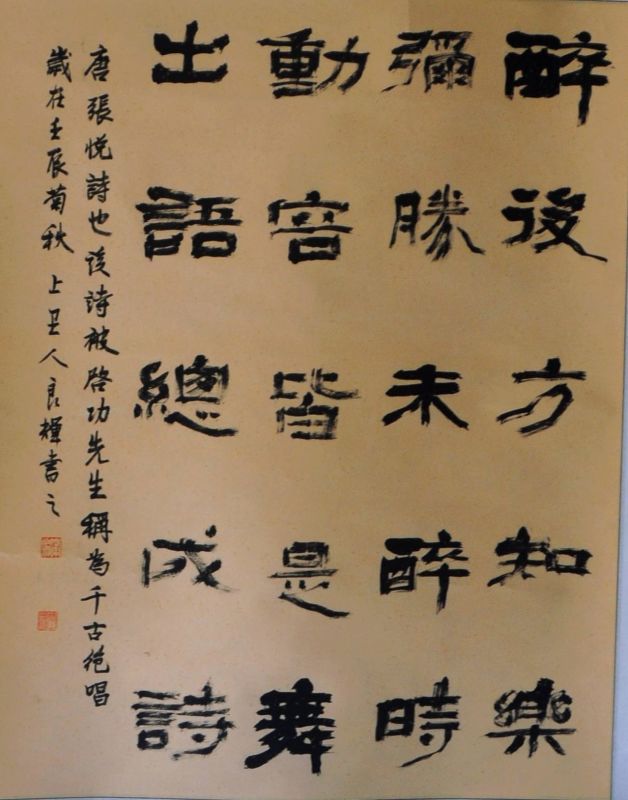 醉後方知樂
彌勝未醉時
動容皆是舞
出語總成詩
唐張悅詩也後詩被啓功先生稱為千古絶唱
歲在壬辰菊秋上丑人良輝書之